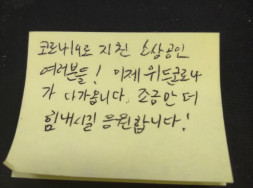 코로나19로 지친 소상공인
여러분들! 이제 위드코로나
가 다가옵니다. 조금만 더
힘내시길 응원합니다!